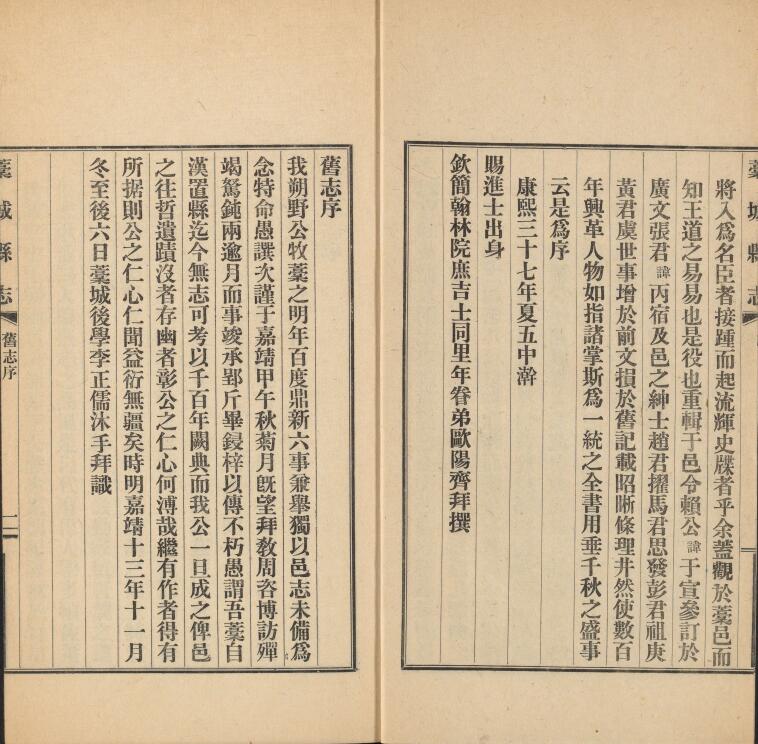 藁城縣志
將入爲名臣者接踵而起流輝史牒者乎余蓋觀於藁邑而
知王道之易易也是役也重輯于邑令賴公諱于宣參訂於
廣文張君諱丙宿及邑之紳士趙君擢馬君思發彭君祖庚
黃君虞世事增於前文損於舊記載昭晰條理井然使數百
年興革人物如指諸掌斯爲一統之全書用垂千秋之盛事
云是爲序
康熙三十七年夏五中澣
賜進士出身
欽簡翰林院庶吉士同里年眷弟歐陽齊拜撰
舊志序
我朔野公牧藁之明年百度鼎新六事兼舉獨以邑志未備爲
念特命愚譔次謹于嘉靖甲午秋菊月旣望拜敎周咨博訪殫
竭駑鈍兩逾月而事竣承郢斤畢鋟梓以傳不朽愚謂吾藁自
漢置縣迄今無志可考以千百年闕典而我公一旦成之俾邑
之往哲遺蹟沒者存幽者彰公之仁心何溥哉繼有作者得有
所据則公之仁心仁聞益衍無疆矣時明嘉靖十三年十一月
冬至後六日藁城後學李正儒沐手拜識
藁城縣志
舊志序